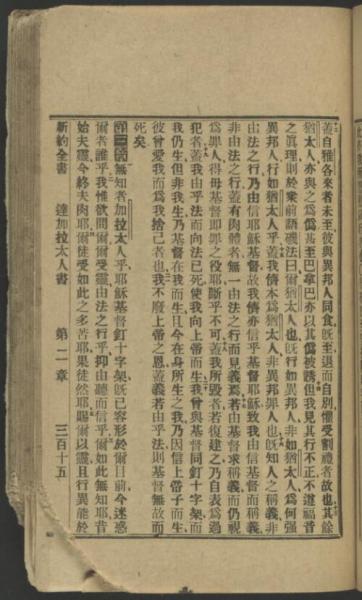 蓋自雅各來者未至彼與異邦人同食既至退而自別懼受割禮者故也其餘
猶太人亦與之爲僞甚至巴拿巴亦以其僞被誘但我見其行不正不道福音
之眞理則於衆前語磯法曰爾猶太人也既行如異邦人非如猶太人爲何强
異邦人行如猶太人乎蓋我儕本爲猶太人非異邦罪人也既知人之稱義非
由法之行乃由信耶穌基督故我儕亦信乎基督耶穌致我由信基督而稱義
非由法之行蓋有肉體者無一由法之行而見義焉若由基督求稱義而仍視
爲罪人得毋基督即罪之役耶斷乎不可蓋我所毀者若復建之乃自表爲過
犯者蓋我由乎法而向法已死使我向上帝而生我曾與基督同釘十字架而
我仍生但非我生乃基督在我而生且今在身所生之我乃因信上帝子而生
彼曾愛我而爲我捨己者也我不廢上帝之恩蓋義若由乎法則基督無故而
死矣
第三章無知者加拉太人乎耶穌基督釘十字架既已容形於爾目前今迷惑
爾者誰乎我惟欲問爾爾受靈由法之行乎抑由聽而信乎爾如此無知耶昔
始夫靈今終夫肉耶爾徒受如此之多苦耶果徒然耶賜爾以靈且行異能於
新約全書 達加拉太人書 第二章 三百十五